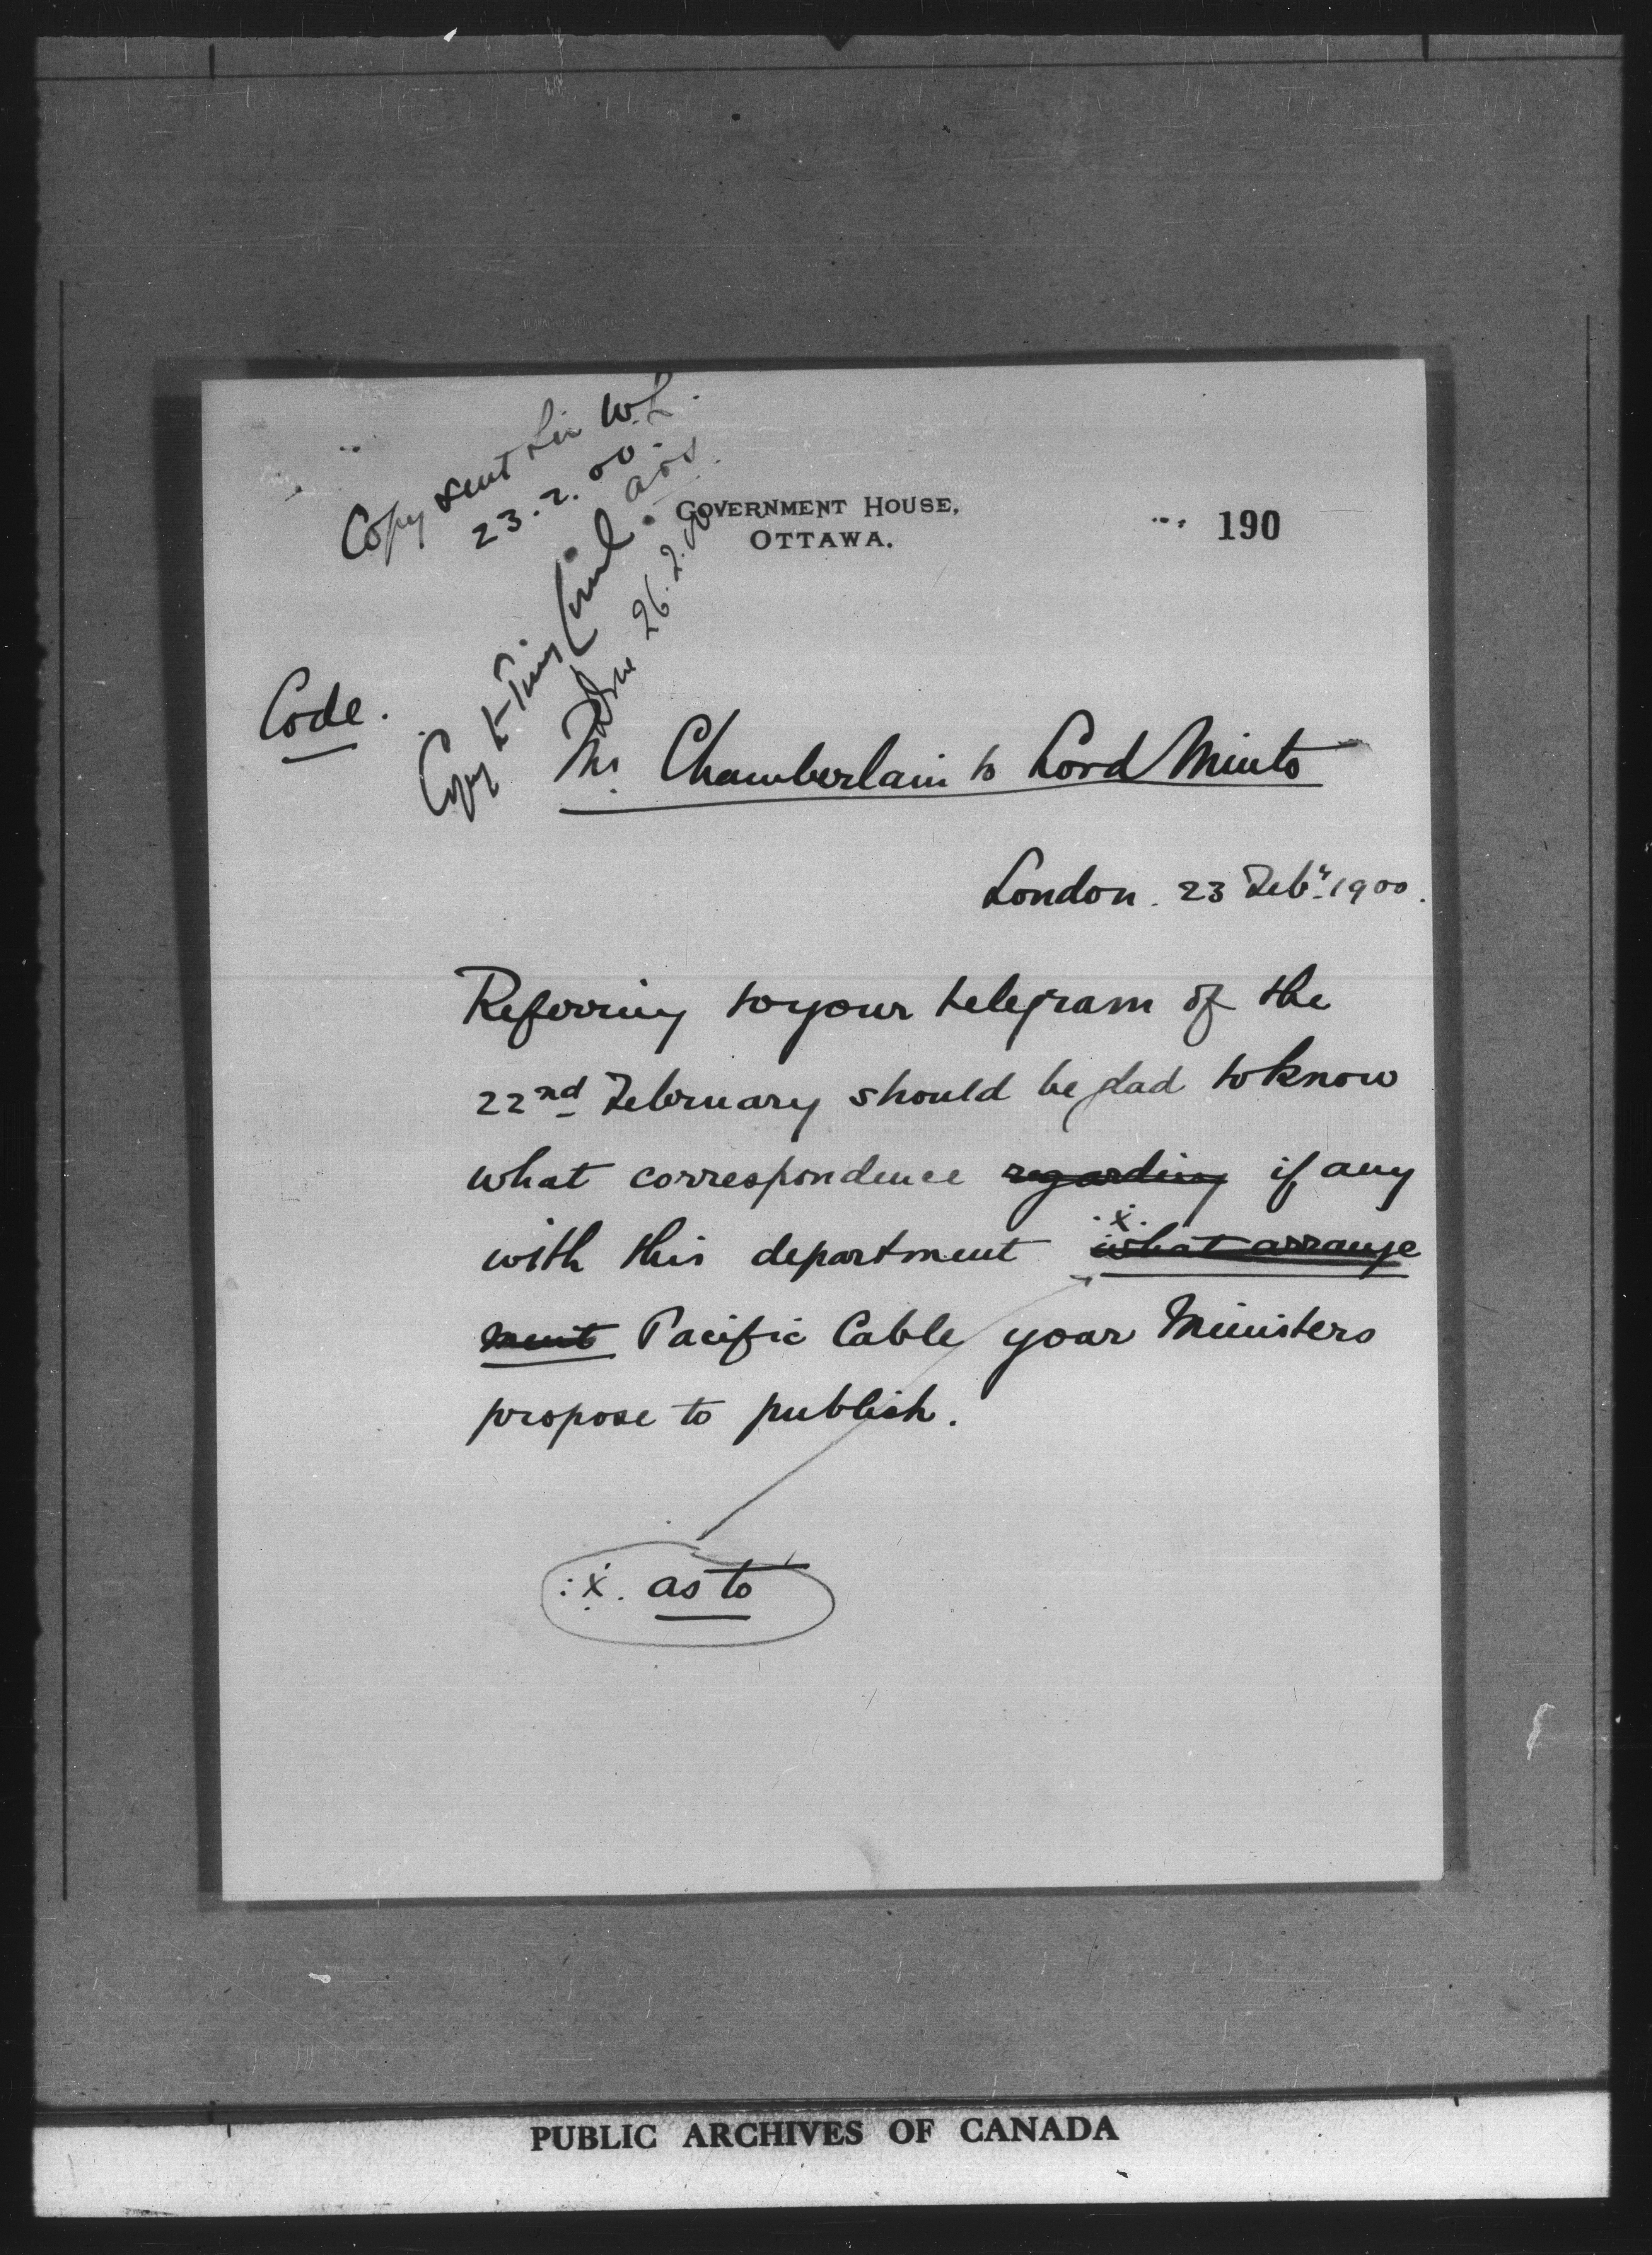 Copy sent Sir W.L.
23.2.00.
GOVERNMENT HOUSE,
OTTAWA.
190
Copy
26.2.00
Code.
Mr Chamberlain to Lord Minto
London. 23 Feby. 1900.
Referring to your telegram of the
22nd February should be glad to know
what correspondence regarding if any
with this department .x. what arrange
ment Pacific Cable your Ministers
propose to publish.
:x. as to
PUBLIC ARCHIVES OF CANADA